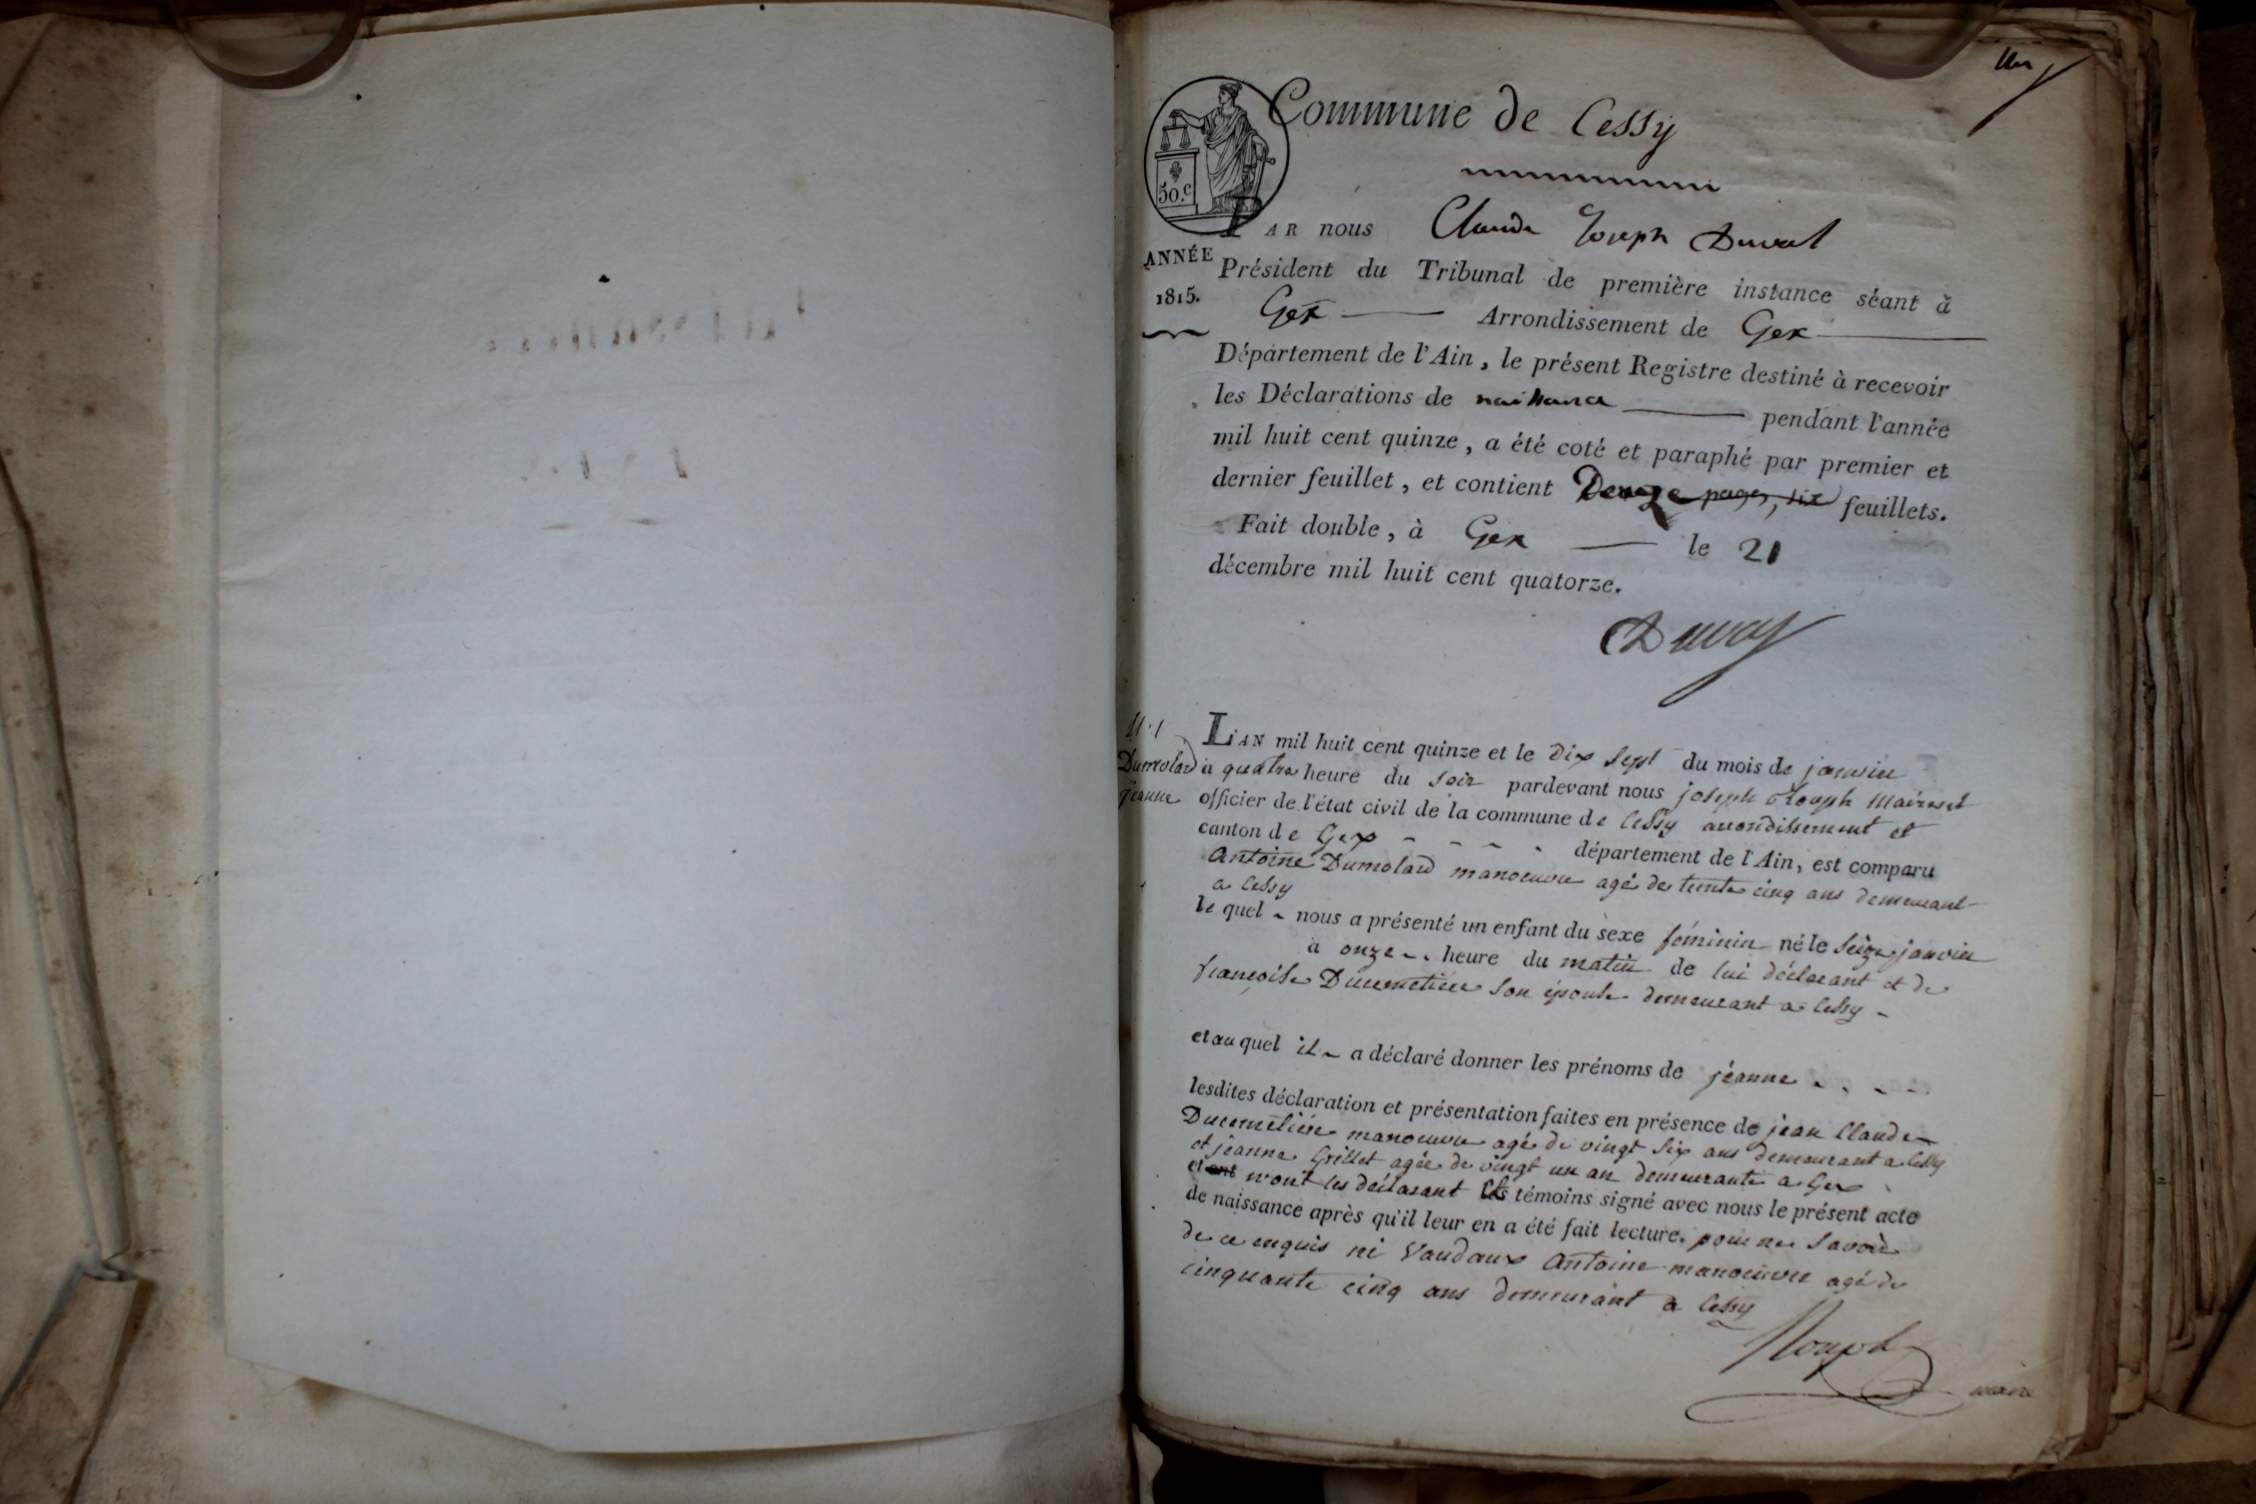 Un
Commune de Cessy
50.c
PAR nous Claude Joseph Duval
ANNÉE
1815.
Président du Tribunal de première instance séant à
Gex Arrondissement de Gex
Département de l'Ain, le présent Registre destiné à recevoir
les Déclarations de naissance pendant l'année
mil huit cent quinze, a été coté et paraphé par premier et
dernier feuillet, et contient Douze pages, six feuillets.
Fait double, à Gex le 21
décembre mil huit cent quatorze.
Duval
N.1
Dumolard
jeanne
L'AN mil huit cent quinze et le Dix Sept du mois de janvier
a quatre heure du soir pardevant nous joseph Maire et
officier de l'état civil de la commune de Cessy arrondissement et
canton de Gex département de l'Ain, est comparu
Antoine Dumolard manoeuvre agé de trente cinq ans demeurant
a Cessy
le quel nous a présenté un enfant du sexe féminin né le Seize janvier
à onze heure du matin de lui déclarant et de
françoise Ducimetière son épouse demeurant a Cessy
et au quel il a déclaré donner les prénoms de jéanne
lesdites déclaration et présentation faites en présence de jean Claude
Ducimetière manoeuvre agé de vingt Six ans demeurant a Cessy
et jeanne Grillet agée de vingt un an demeurante a Gex
et ont n'ont les déclarant les témoins signé avec nous le présent acte
de naissance après qu'il leur en a été fait lecture. pour ne savoir
de ce enquis ni Vaudaux Antoine manoeuvre agé de
cinquante cinq ans demeurant a Cessy
maire